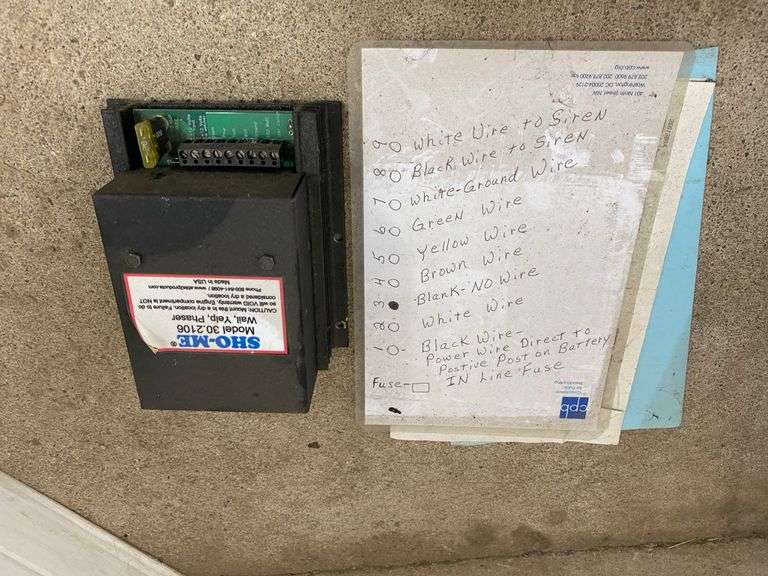 SHO-ME®
Model 30.2106
Wail, Yelp, Phaser
CAUTION: Mount this in a dry location. Failure to do
so will VOID warranty. Engine compartment is NOT
considered a dry location.
Made in USA
401 Ninth Street, NW
Washington, DC 20004-2129
202.879.9600
www.cpb.org
9 White Wire to Siren
8 Black Wire to Siren
7 White-Ground Wire
6 Green Wire
5 Yellow Wire
4 Brown Wire
3 Blank-No Wire
2 White Wire
1 Black Wire-
Power Wire Direct to
Postive Post on Battery
Fuse- IN Line Fuse
cpb